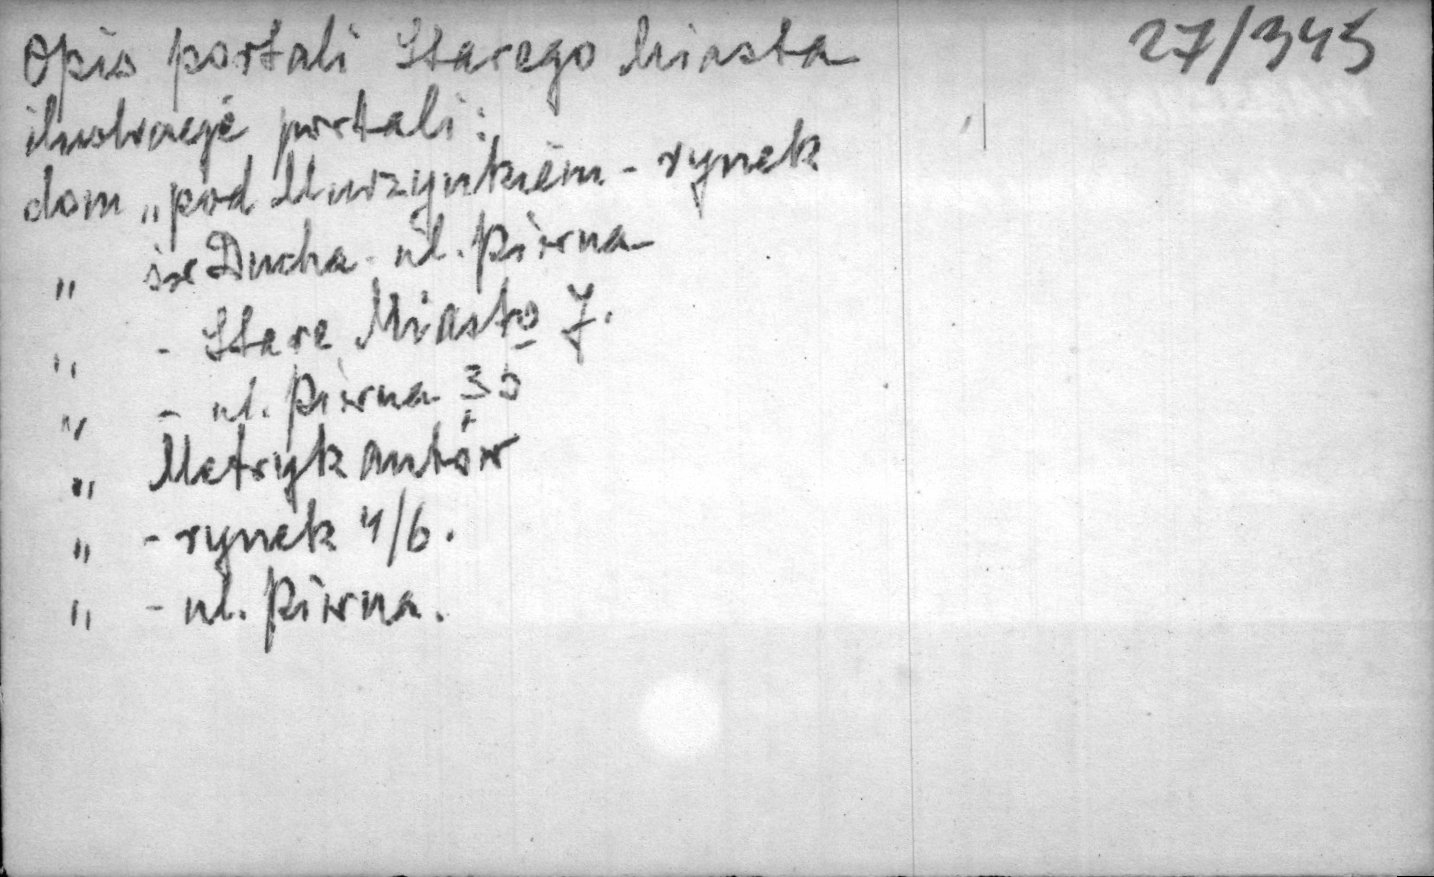 Opis portali Starego Miasta 27/345
ilustracje portali:
dom „pod Murzynkiem - rynek
„ św Ducha - ul. Piwna
„ - Stare Miasto 7.
„ - ul. Piwna 35
„ Metrykantów
„ - rynek 4/6.
„ - ul. Piwna.